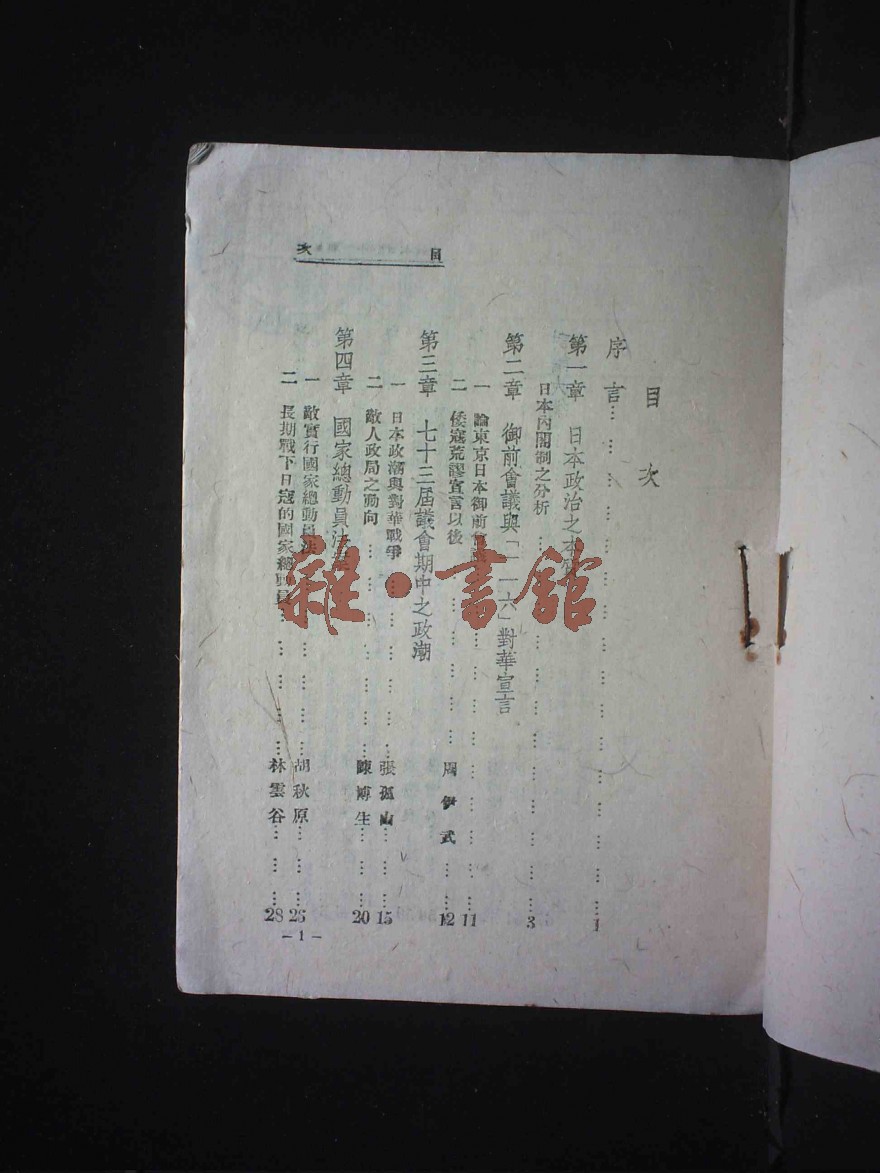 目次
目次
序言…………………………1
第一章 日本政治之本
日本內閣制之分析…………………3
第二章 御前會議與「一一六」對華宣言
一 論東京日本御前會…………11
二 倭寇荒謬宣言以後…………周伊武……12
第三章 七十三屆議會期中之政潮
一 日本政潮與對華戰爭…………張孤山……15
二 敵人政局之動向…………陳博生……20
第四章 國家總動員法
一 敵實行國家總動員法…………胡秋原……25
二 長期戰下日寇的國家總動員…………林雲谷……28
-1-
雜·書館